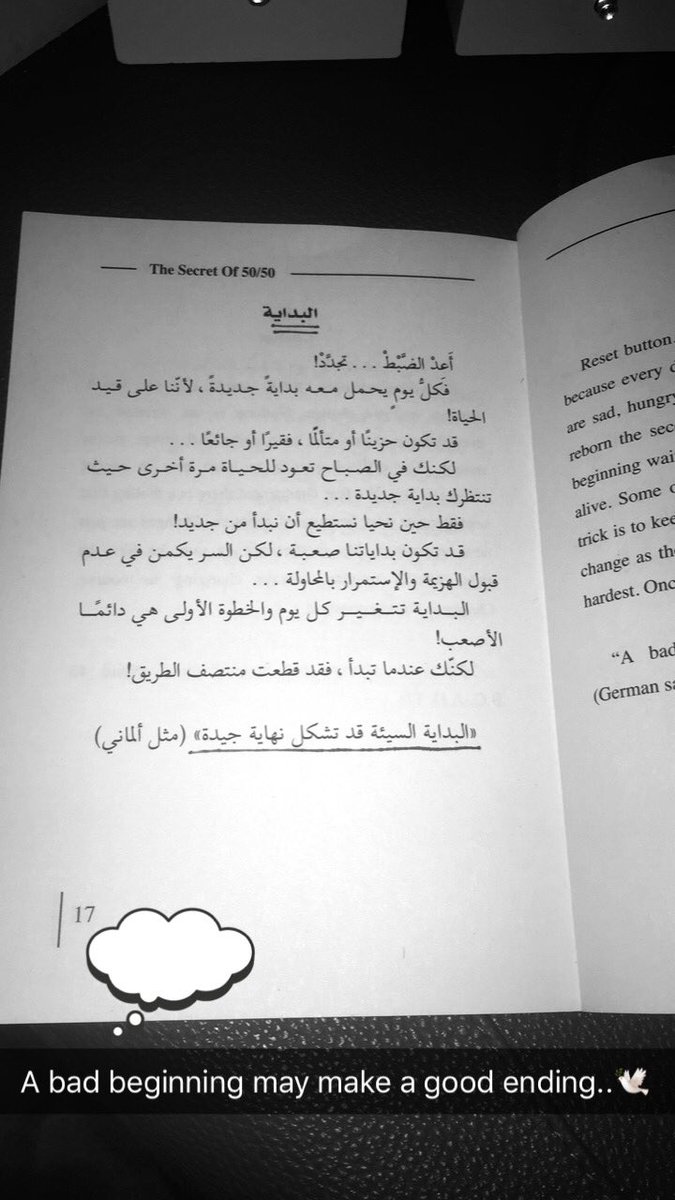 The Secret Of 50/50
البداية
أَعدْ الضَّبْطْ ... تجدَّدْ!
فكلُّ يومٍ يحمل معه بدايةً جديدةً ، لأنّنا على قيد
الحياة!
قد تكون حزينًا أو متألمًّا ، فقيرًا أو جائعًا ...
لكنك في الصباح تعود للحياة مرة أخرى حيث
تنتظرك بداية جديدة ...
فقط حين نحيا نستطيع أن نبدأ من جديد!
قد تكون بداياتنا صعبة ، لكن السر يكمن في عدم
قبول الهزيمة والإستمرار بالمحاولة ...
البداية تتغير كل يوم والخطوة الأولى هي دائمًا
الأصعب!
لكنّك عندما تبدأ ، فقد قطعت منتصف الطريق!
«البداية السيئة قد تشكل نهاية جيدة» (مثل ألماني)
17
Reset button.
because every
are sad, hungry
reborn the
beginning
alive. Some
trick is to
change as
hardest.
“A bad
(German
A bad beginning may make a good ending..🕊